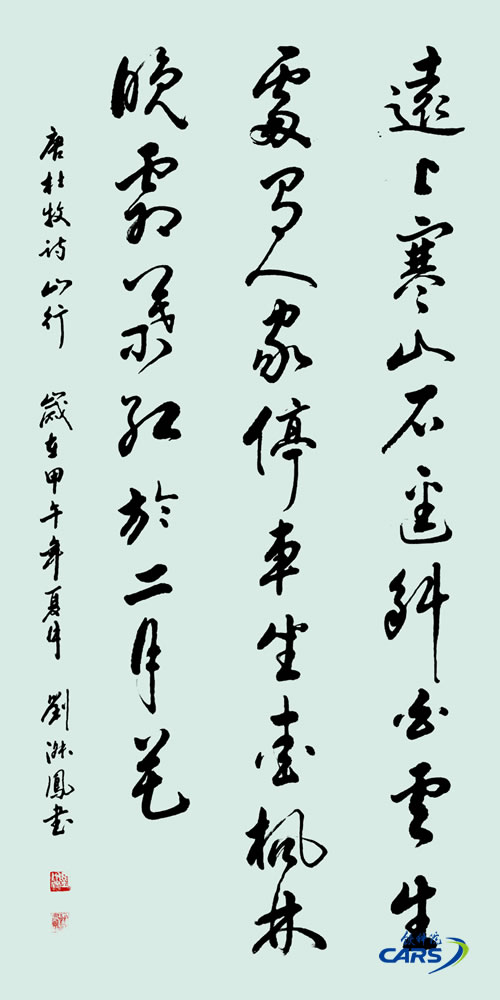 遠上寒山石逕斜白雲生
處有人家停車坐愛楓林
晚霜葉紅於二月花
唐杜牧诗山行 歲在甲午年夏月 劉淑鳳书
铁科院
CARS